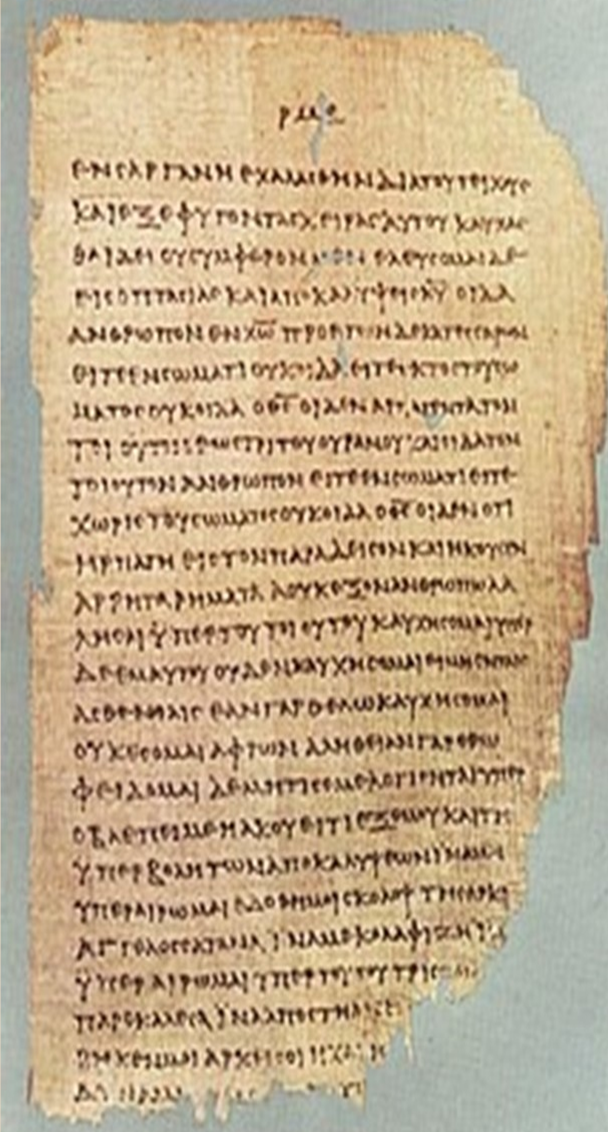 ϲαργανη εχαλαϲθην δια του τειχουϲ
και εξεφυγον ταϲ χειραϲ αυτου καυχαϲ
θαι δει ου ϲυμφερον ελευϲομαι δε
ειϲ οπταϲιαϲ και αποκαλυψειϲ κ̅υ̅ οιδα
ανθρωπον εν χ̅ω̅ προ ετων δεκατεϲϲαρων
ειτε εν ϲωματι ουκ οιδα ειτε εκτοϲ του ϲω
ματοϲ ουκ οιδα ο θ̅ϲ̅ οιδεν τον
εωϲ τριτου ουρανου και οιδα τον
τοιουτον ανθρωπον ειτε εν ϲωματι ειτε
χωριϲ του ϲωματοϲ ουκ οιδα ο θ̅ϲ̅ οιδεν οτι
ηρπαγη ειϲ τον παραδειϲον και ηκουϲεν
αρρητα ρηματα α ουκ εξον ανθρωπω λα
ληϲαι ϋπερ του τοιουτου καυχηϲομαι ϋπερ
δε εμαυτου ουδεν καυχηϲομαι ει μη εν ταιϲ
αϲθενειαιϲ εαν γαρ θελω καυχηϲομαι
ουκ εϲομαι αφρων αληθειαν γαρ ερω
φειδομαι δε μη τιϲ εμε λογιϲηται ϋπερ
ο βλεπει με η ακουει τι εξ εμου και τη
ϋπερβολη των αποκαλυψεων ϊνα μη
ϋπεραιρωμαι εδοθη μοι ϲκολοψ τη ϲαρκι
αγγελοϲ ϲατανα ϊνα με κολαφιζη ϊνα
ϋπεραιρωμαι ϋπερ τουτου τριϲ
παρεκαλεϲα ϊνα αποϲτη
αρκει ϲοι η χαριϲ